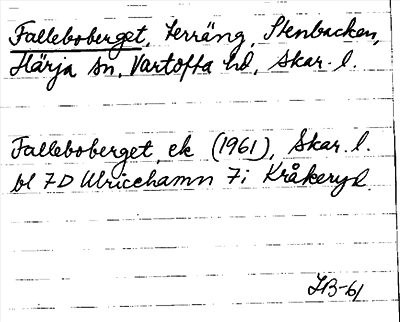 Falleboberget, terräng, Stenbacken,
Härja sn, Vartofta hd, Skar. l.
Falleboberget, ek (1961), Skar. l.
bl 7D Ulricehamn 7i Kråkeryd.
IB-61